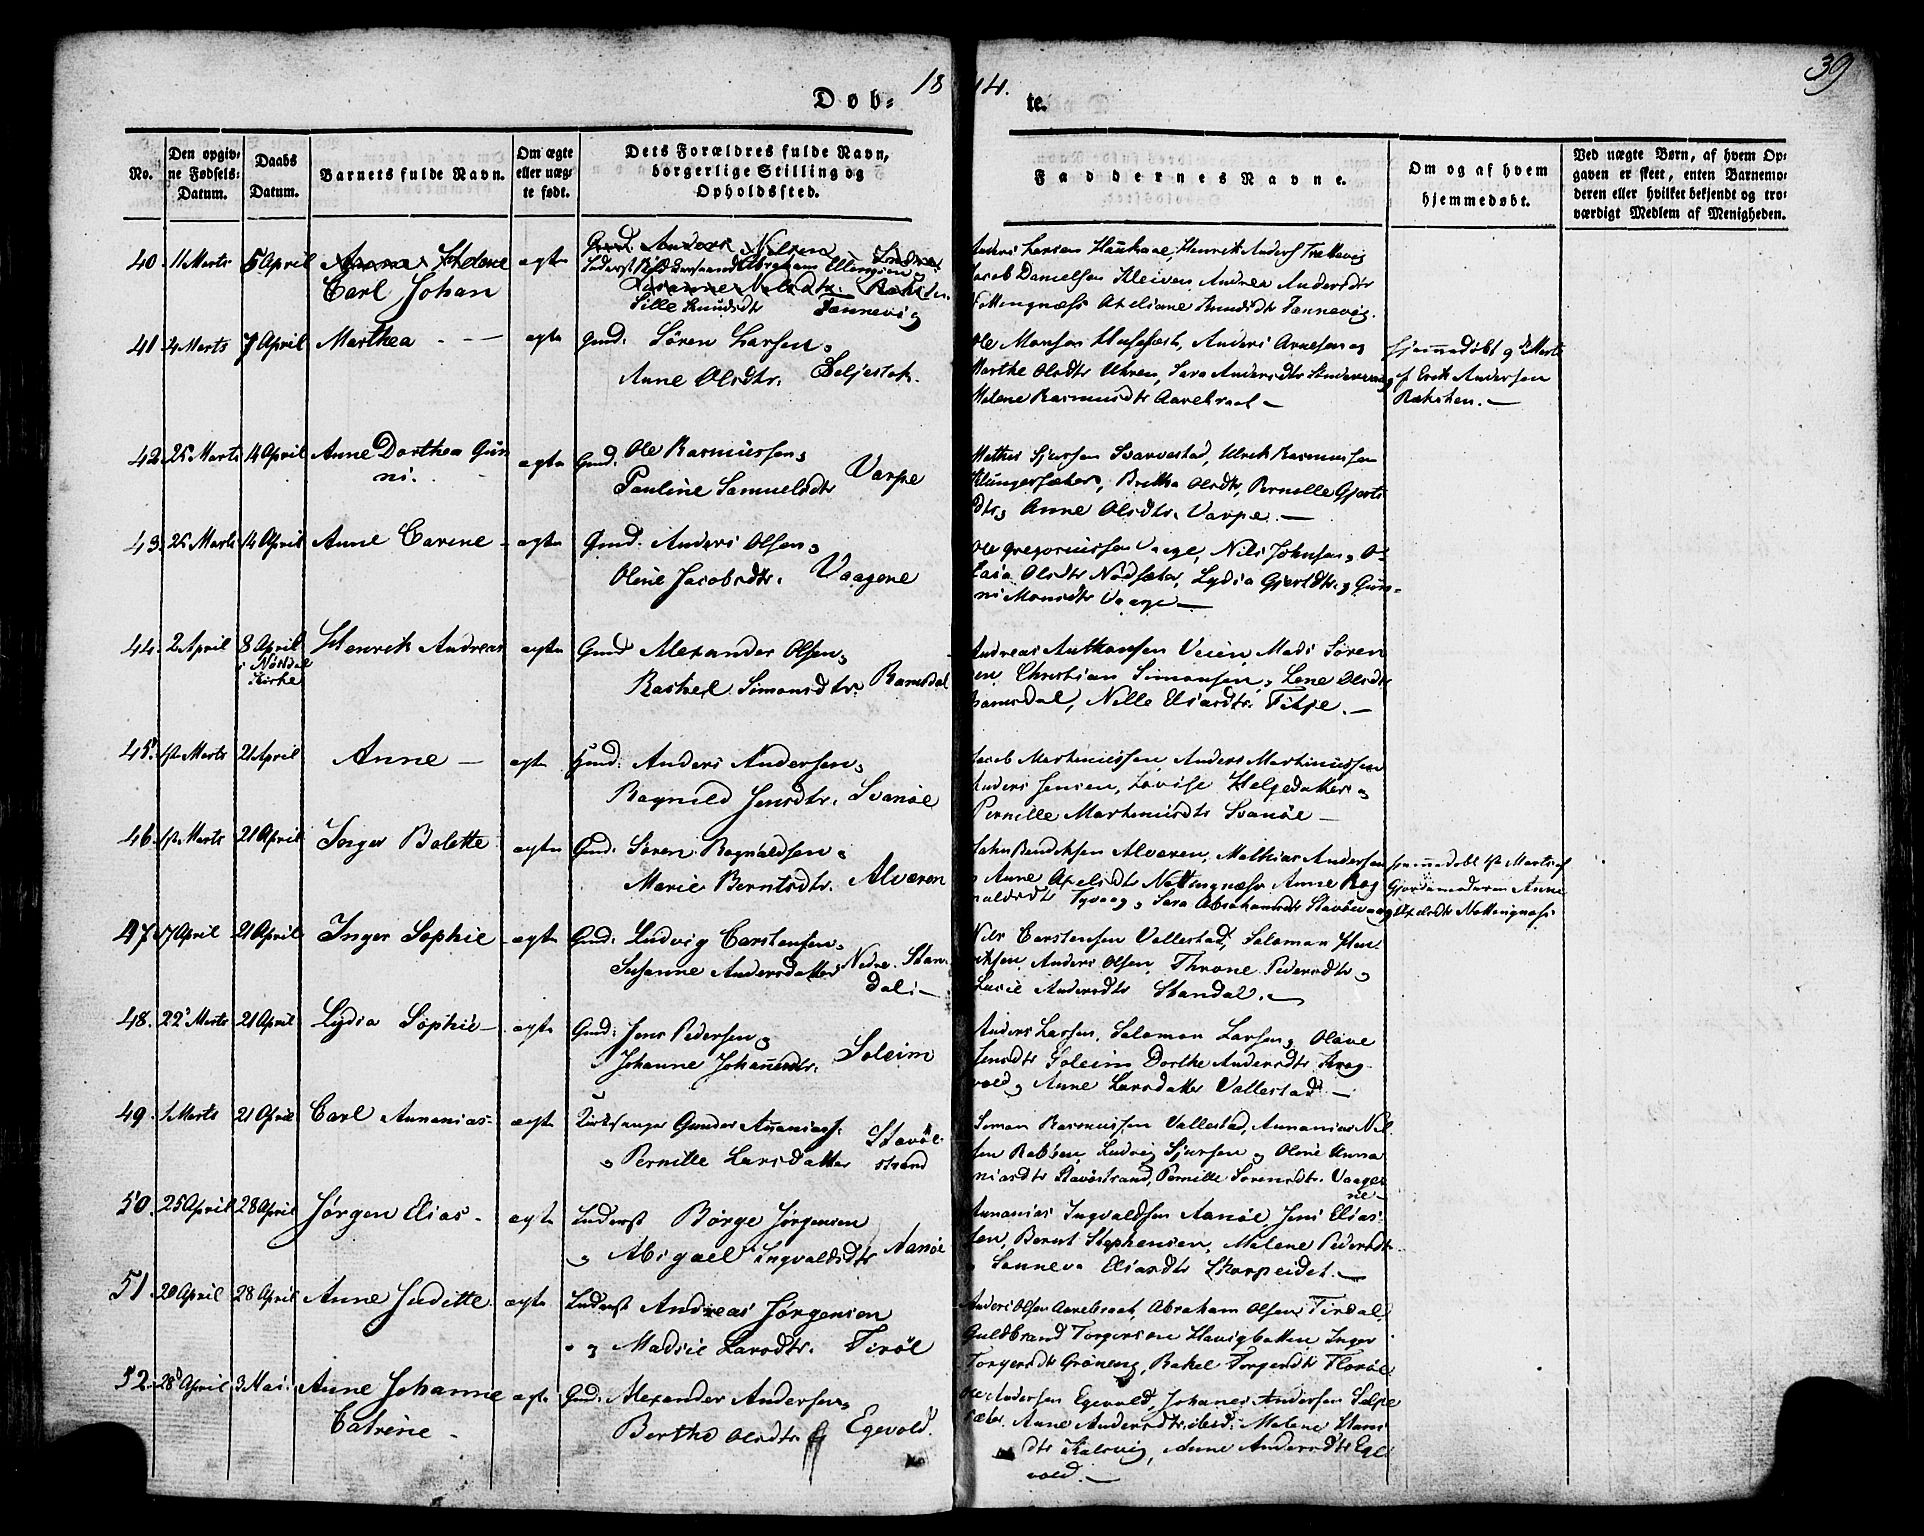 18 44.
39
Døb-
te.
No.
Den opgiv-
ne Fødsels-
Datum.
Daabs
Datum.
Barnets fulde Navn.
Om ægte
eller uæg-
te født.
Dets Forældres fulde Navn,
borgerlige Stilling og
Opholdssted.
Faddernes Navne.
Om og af hvem
hjemmedøbt.
Ved uægte Børn, af hvem Op-
gaven er skeet, enten Barnemo-
deren eller hvilket bekjendt og tro-
værdigt Medlem af Menigheden.
40. 11 Marts 5 April Helene ægte Gmd. Anders Nilsen
Carl Johan
Sille Knudsdtr Fannevig
Anders Larsen Haukaae, Henrik Anders Trettevig
Jacob Danielsen Kleiven Andrea Andersdtr
41 4 Marts 7 April Marthea - ægte Gmd: Søren Larsen og
Anne Olsdtr. Seljestok.
Ole Monsen Husefest, Anders Arnesen og
Marthe Olsdtr Uhren, Sara Andersdtr
Helene Rasmusdtr Aarebrot -
Hjemmedøbt 9de Marts
af Erik Andersen
42. 25 Marts 14 April Anne Dorthea Gun
ni. ægte Gmd. Ole Rasmussen og
Pauline Samuelsdtr Varpe
Mathis Sjursen Svarvestad, Ulrik Rasmussen
Klungersæter, Brithe Olsdtr, Pernille Gjerts
dtr og Anne Olsdtr. Varpe. -
43. 25 Marts 14 April Anne Carine - ægte Gmd. Anders Olsen og
Oline Jacobsdtr. Vaagene
Ole Gregoriussen Vaage, Nils Johnsen, O-
Olsdtr Nødsæter, Lydia Gjertdtr. og Gun-
ni Monsdtr Vaage -
44. 2 April 8 April
i Nordal
Kirke
Henrik Andreas ægte Gmd Alexander Olsen og
Rachel Simonsdtr. Ramsdal
Andreas Anthonsen Veien, Mads Søren
sen Christian Simonsen, Lene Olsdtr
Ramsdal, Nille Eliasdtr. Titse. -
45. Marts 21 April Anne - ægte Gmd: Anders Andersen og
Ragnild Jensdtr. Svanøe
Jacob Martinussen Anders Martinussen
Anders Jensen, Lovise Helgedatter og
Pernille Martinusdtr Svanøe -
46. Marts 21 April Inger Bolette ægte Gmd: Søren Ragnaldsen og
Marie Berntsdtr. Alværen
John Bendiksen Alværen, Mathias Andersen
Anne Axelsdtr Nottingnæs, Anne Rag
naldsdtr Tyvaag og Sara Abrahamsdtr Stavøevaag
Hjemmedøbt Marts af
Gjordemoderen Anne
Axelsdtr Nottingnæs
47. 7 April 21 April Inger Sophie - ægte Gmd: Ludvig Carstensen og
Susanne Andersdatter Nedre Stan-
dal: -
Nils Carstensen Vallestad, Salamon Hen
riksen, Anders Olsen, Throne Pedersdtr og
Lucie Andersdtr Standal. -
48. 22 Marts 21 April Lydia Sophie - ægte Gmd: Jens Pedersen og
Johanne Johannesdtr. Soleim
Anders Larsen, Salamon Larsen, Olave
Jensdtr Soleim Dorthe Andersdtr
vold, Anne Larsdatter Vallestad -
49. 1 Marts 21 April Carl Annanias - ægte Kirkesanger Gunder Ananias.
og Pernille Larsdatter Stavøe-
strand
Simon Rasmussen Vallestad, Annanias Nil
sen Rebsen, Ludvig Sjursen og Oline Anna
niasdtr Stavøstrand, Pernille Sørensdtr. Vaage
ne -
50. 25 April 28 April Jørgen Elias - ægte Inderst Børge Jørgensen
og Abigael Ingvaldsdtr Nanøe
Annanias Ingvaldsen Nanøe, Jens Elias
sen, Bernt Stephensen, Malene Pedersdtr
Sanneva Eliasdtr Skorpeidet. -
51. 20 April 28 April Anne Judithe ægte Inderst Andreas Jørgensen
og Madsie Larsdtr. Tirøl
Anders Olsen Aarebrot, Abraham Olsen Tirdal,
Guldbrand Torgersen Havigbotten Inger
Torgersdtr Grøneng, Rakel Torgersdtr Florøe
52. 28 April 3 Mai: Anne Johanne
Catrine - ægte Gmd: Alexander Andersen og
Berthe Olsdtr. Egevold.
Ole Andersen Egevold, Johanes Andersen Selje
sæter, Anne Andersdtr ibid: Malene Hans
dtr Kalsvig, Anne Andersdtr Ege
vold. -